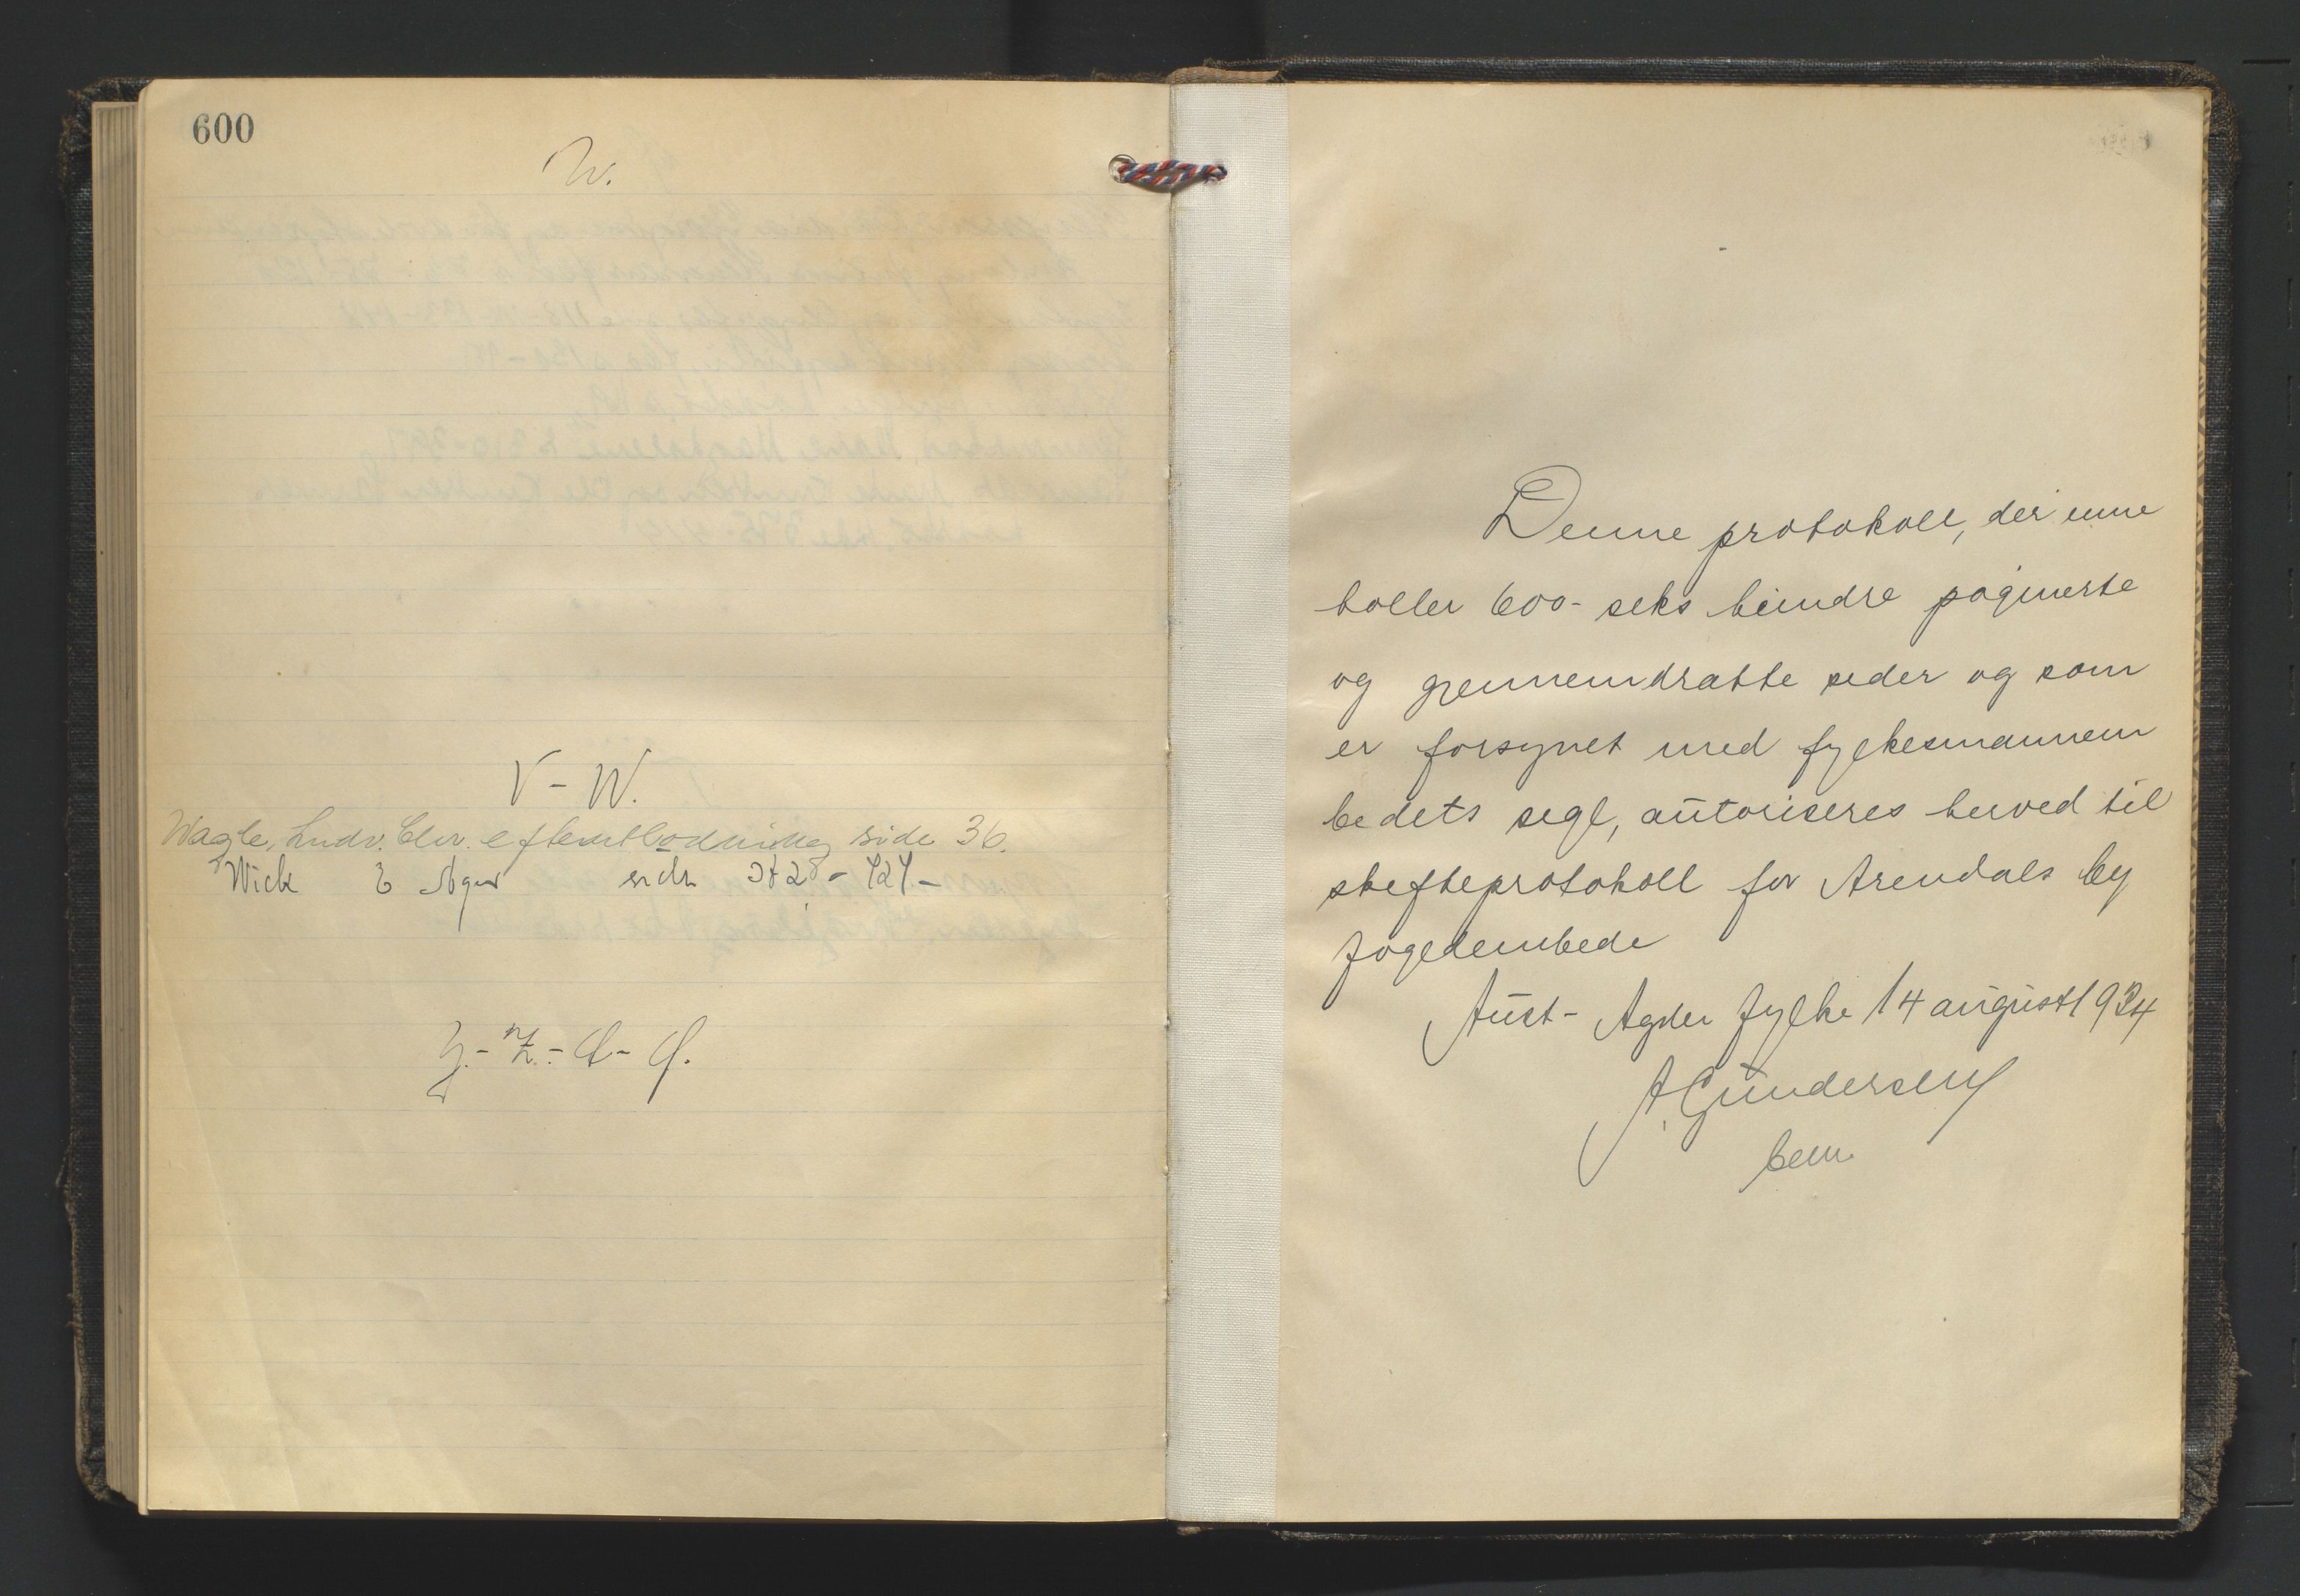 600
W.
V - W.
Wagle, Ludv. Chr. efterlatte side 36.
Wick E side 382 - 424 -
Y. - Z. - Æ - Ø.
Denne protokoll, der inne
holler 600 - seks hundre paginerte
og gjennemdratte sider og som
er forsynet med fylkesmannem
bedets segl, autoriseres herved til
skifteprotokoll for Arendals by
fogedembede
Aust - Agder fylke 14 august 1934
A Gundersen
bem.